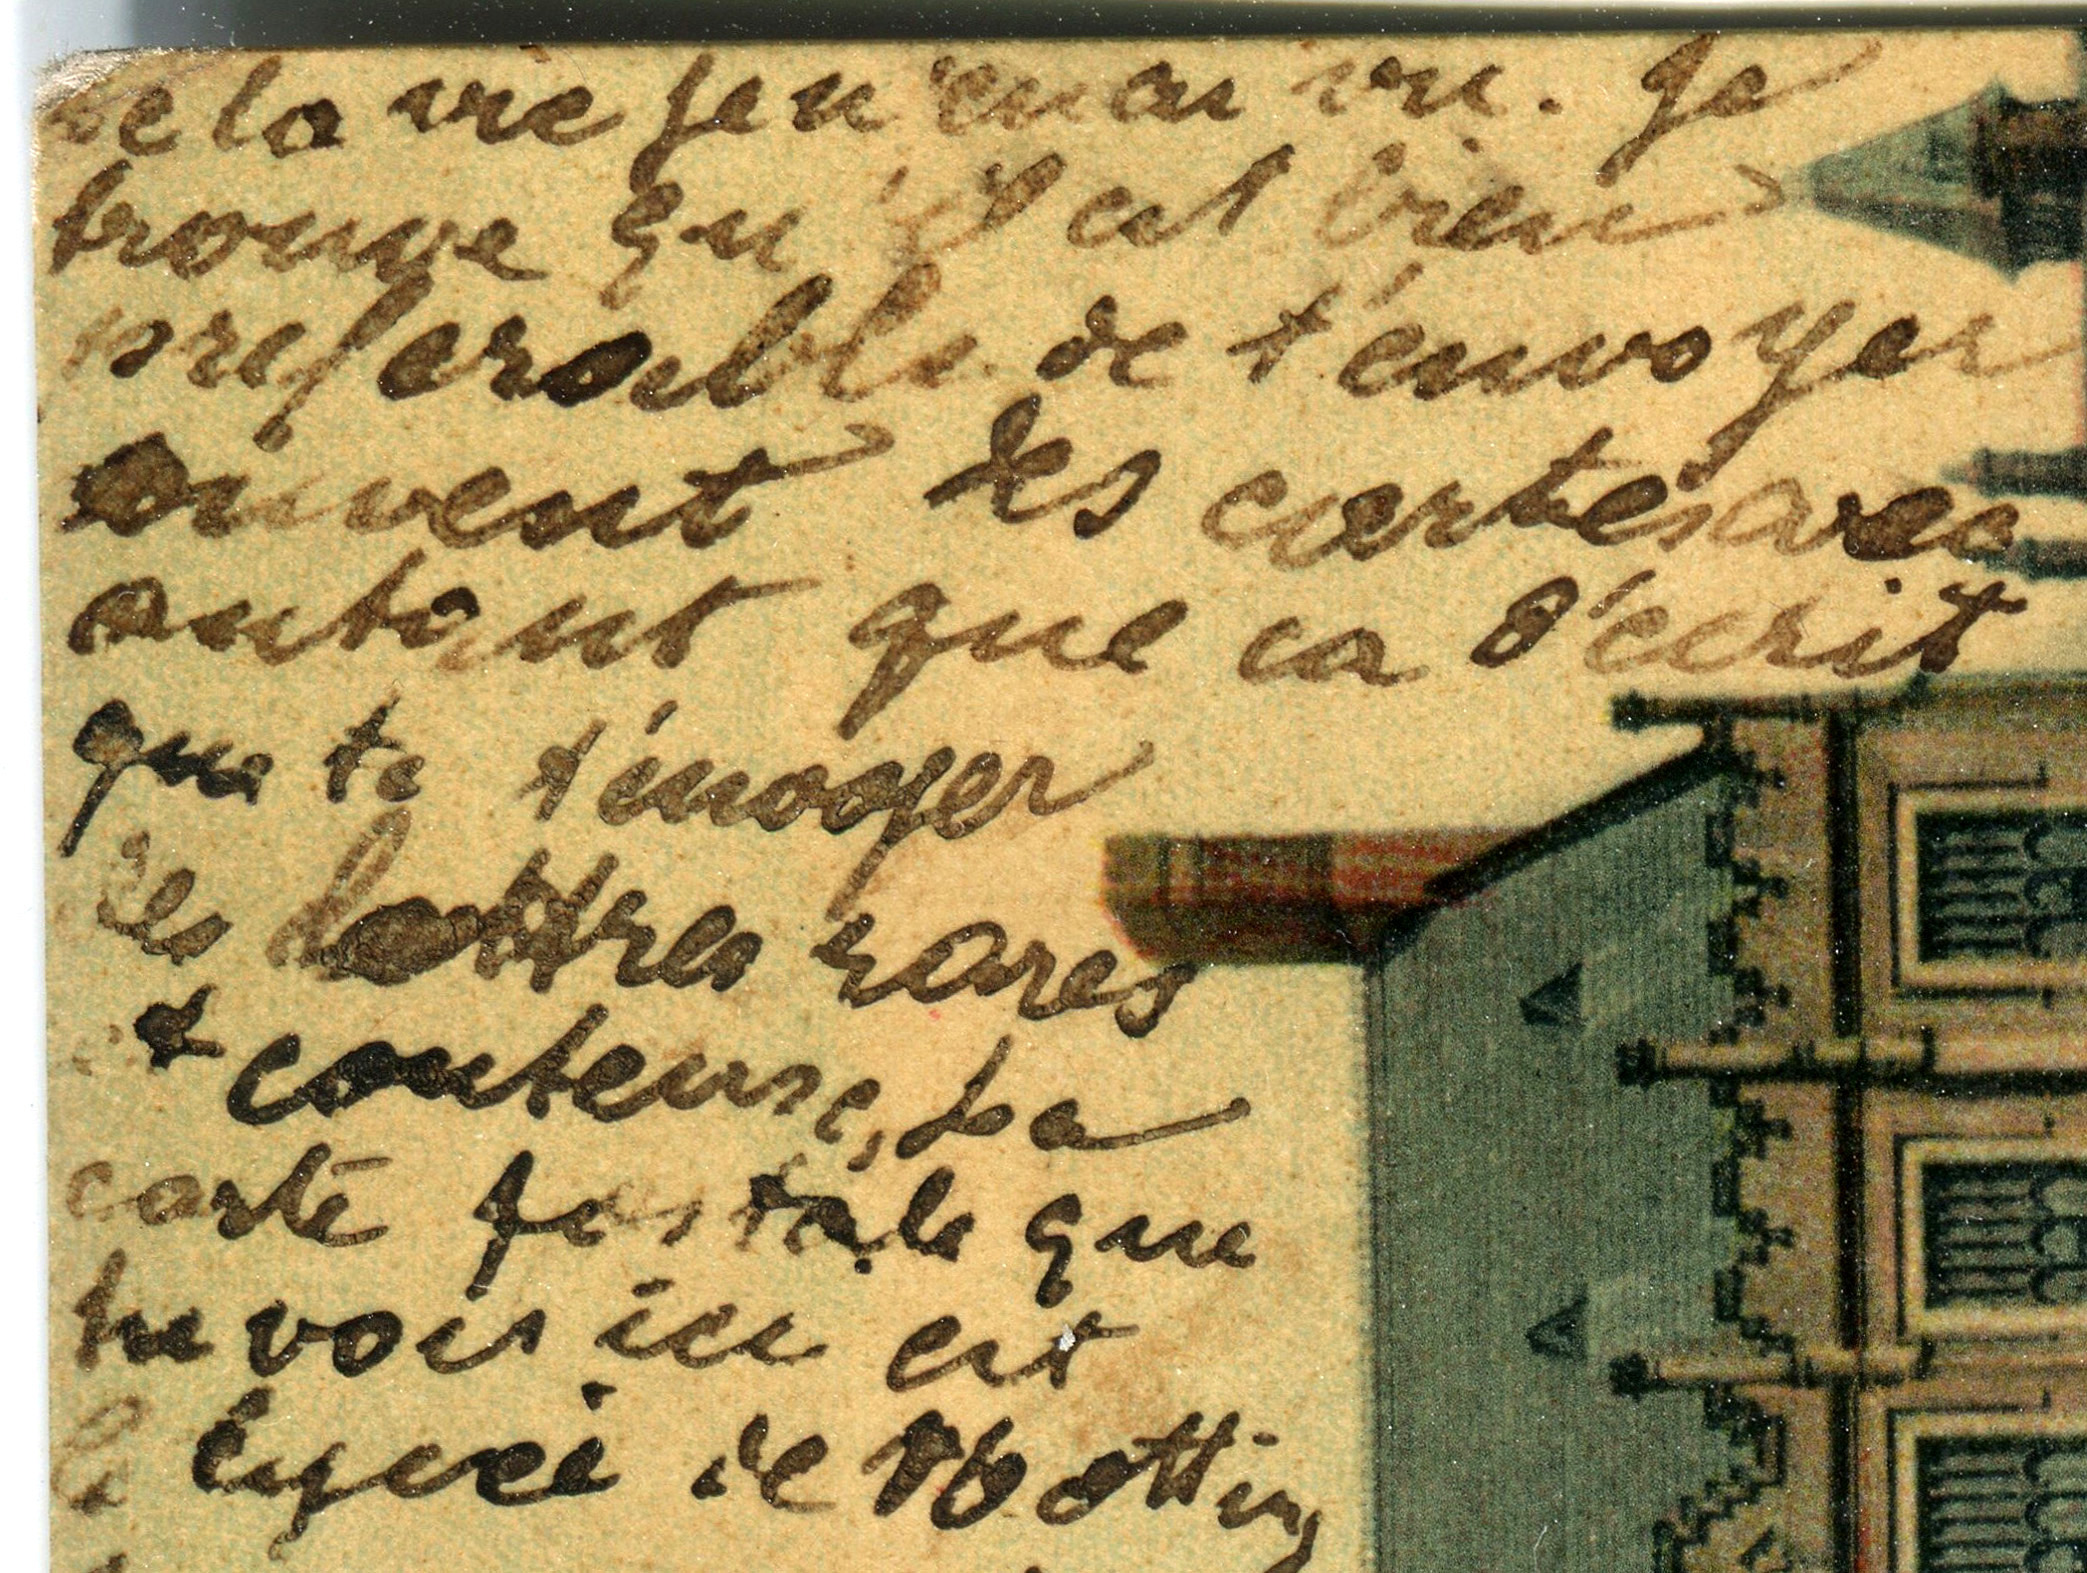 de la vie j'en en ai vu. Je
trouve qu'il est bien
preferable de t'envoyer
souvent des cartes avec
autant que ca d'écrit
que te t'envoyer
des lettres rares
et couteuse, La
carte postale que
tu vois ici est
le lycée de Notting